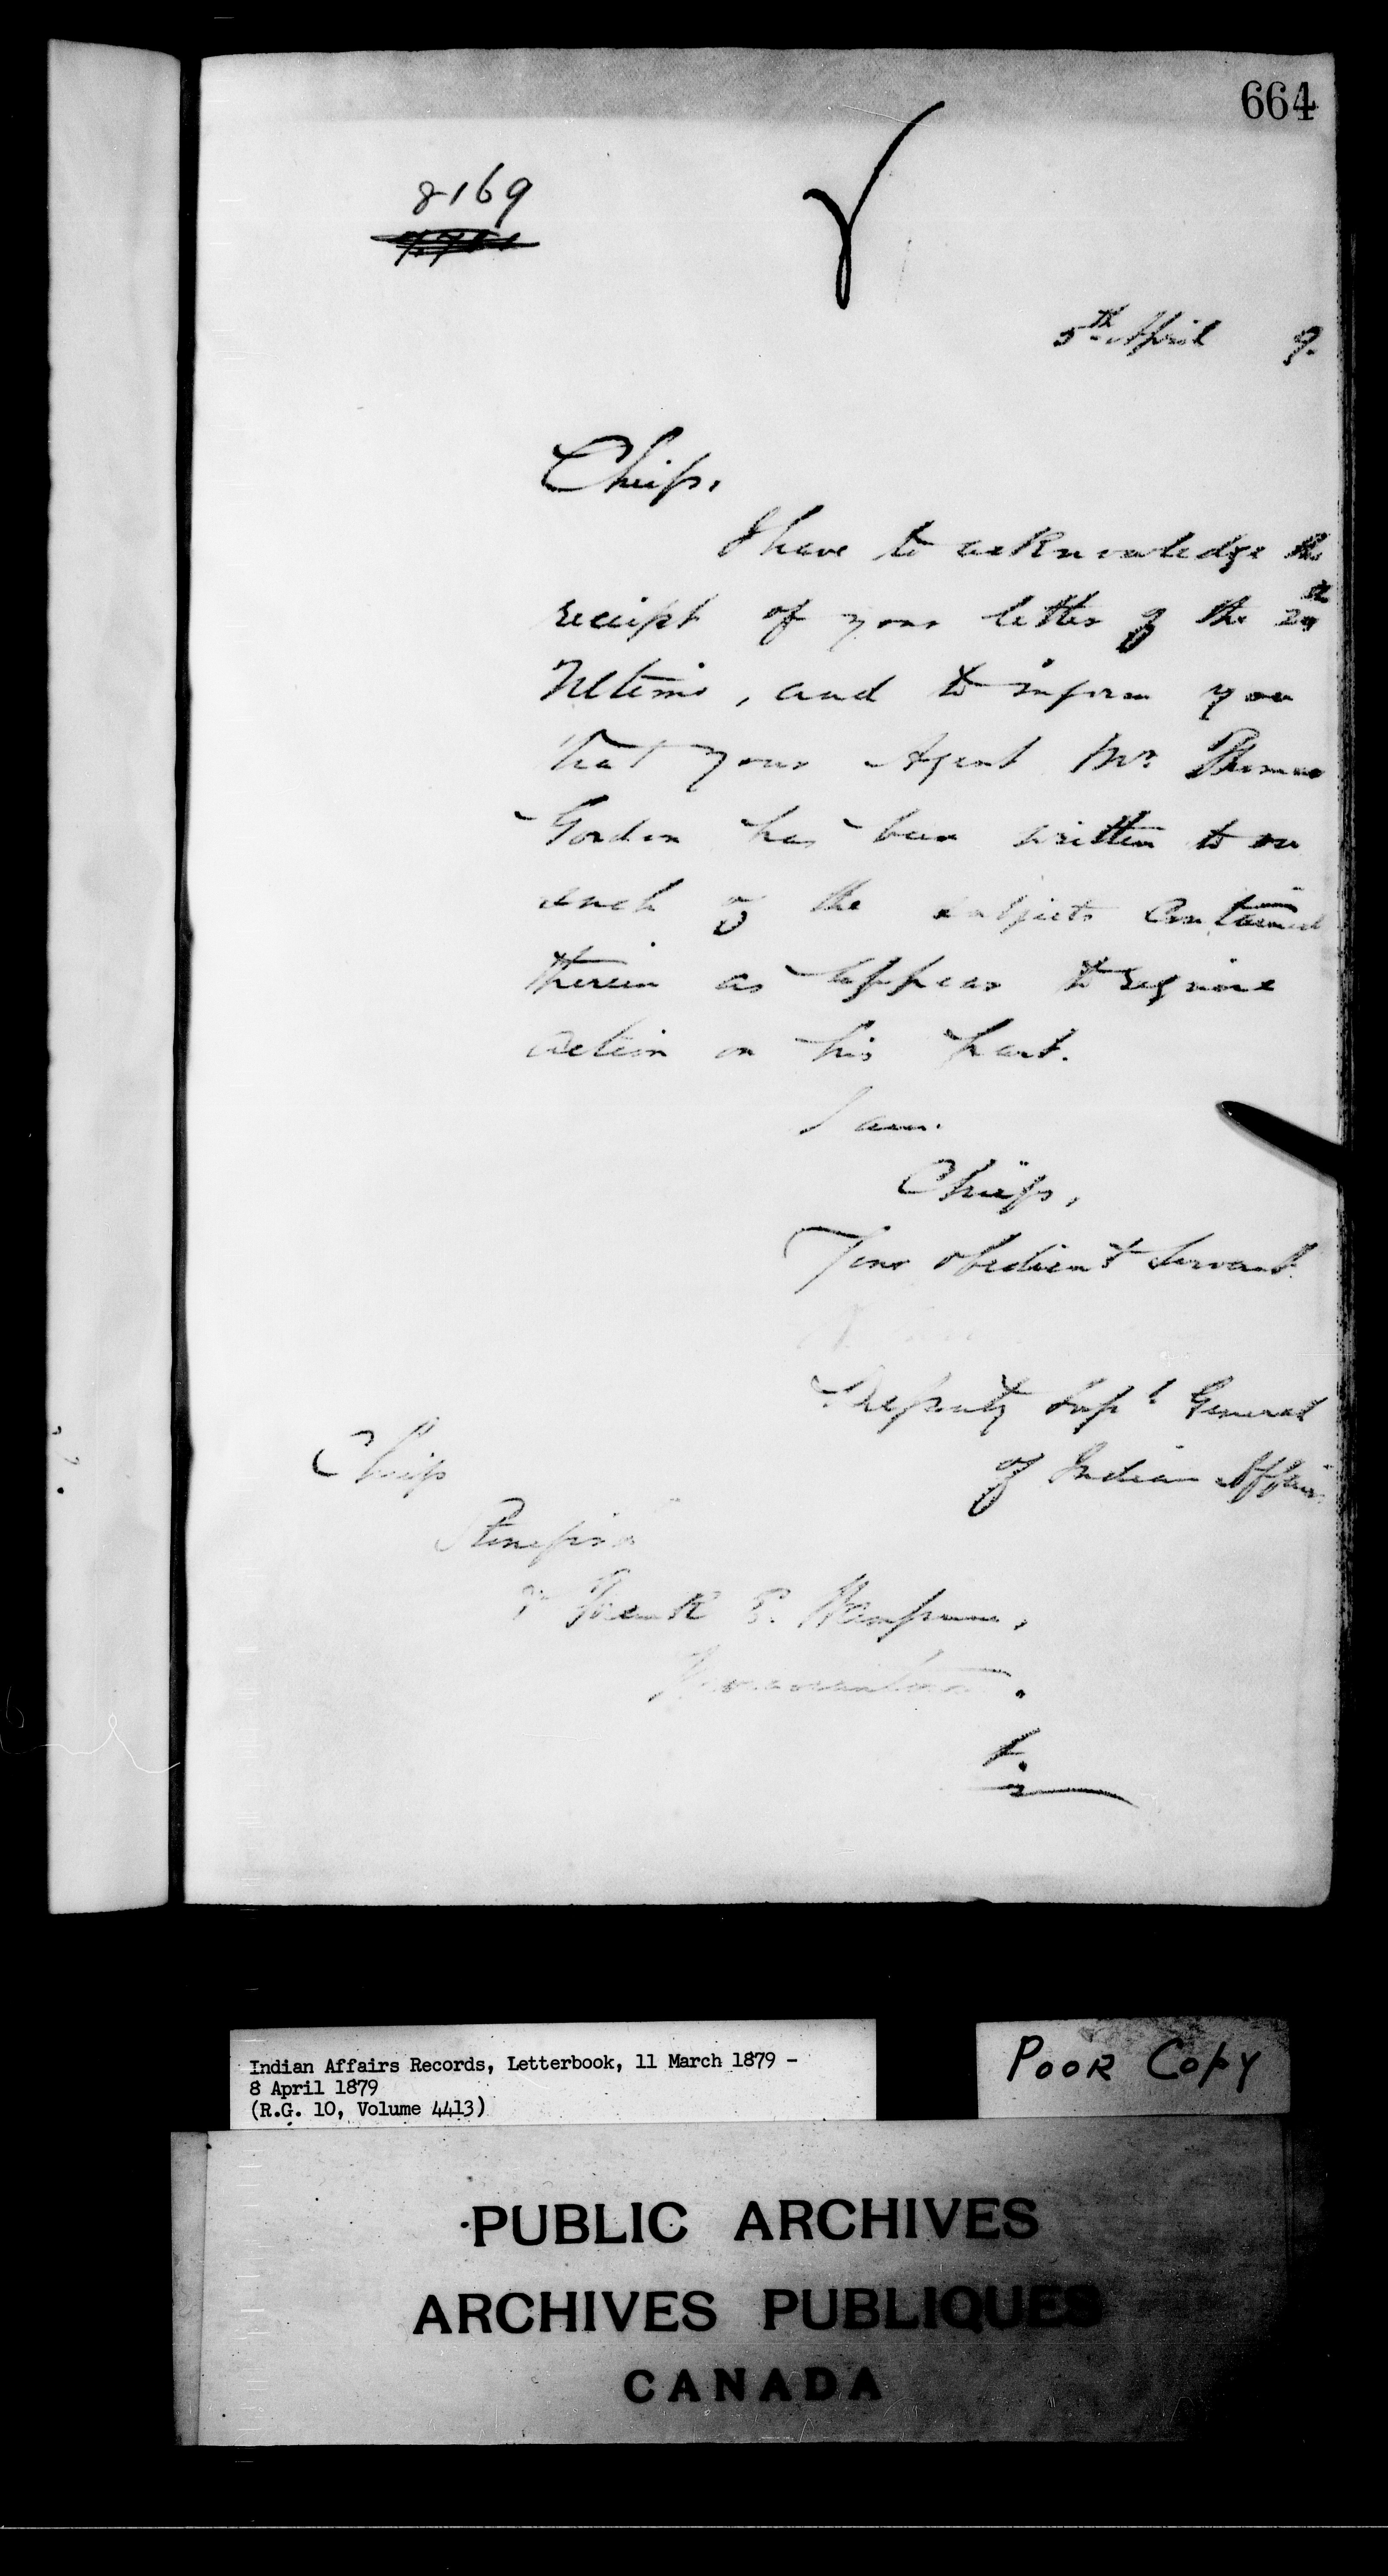 664
8169
5th April 9.
Chiefs,
I have to acknowledge the
receipt of your letter of the
Ultimo, and to inform you
that your Agent Mr. Thomas
Gordon has been written to on
such of the subjects contained
therein as appear to require
action on his part.
I am.
Chiefs,
Your obedient Servant
Deputy Supt General
of Indian Affairs
Chiefs
Stonefish
& Frank
Indian Affairs Records, Letterbook, 11 March 1879 -
8 April 1879
(R.G. 10, Volume 4413)
POOR COPY
PUBLIC ARCHIVES
ARCHIVES PUBLIQUES
CANADA